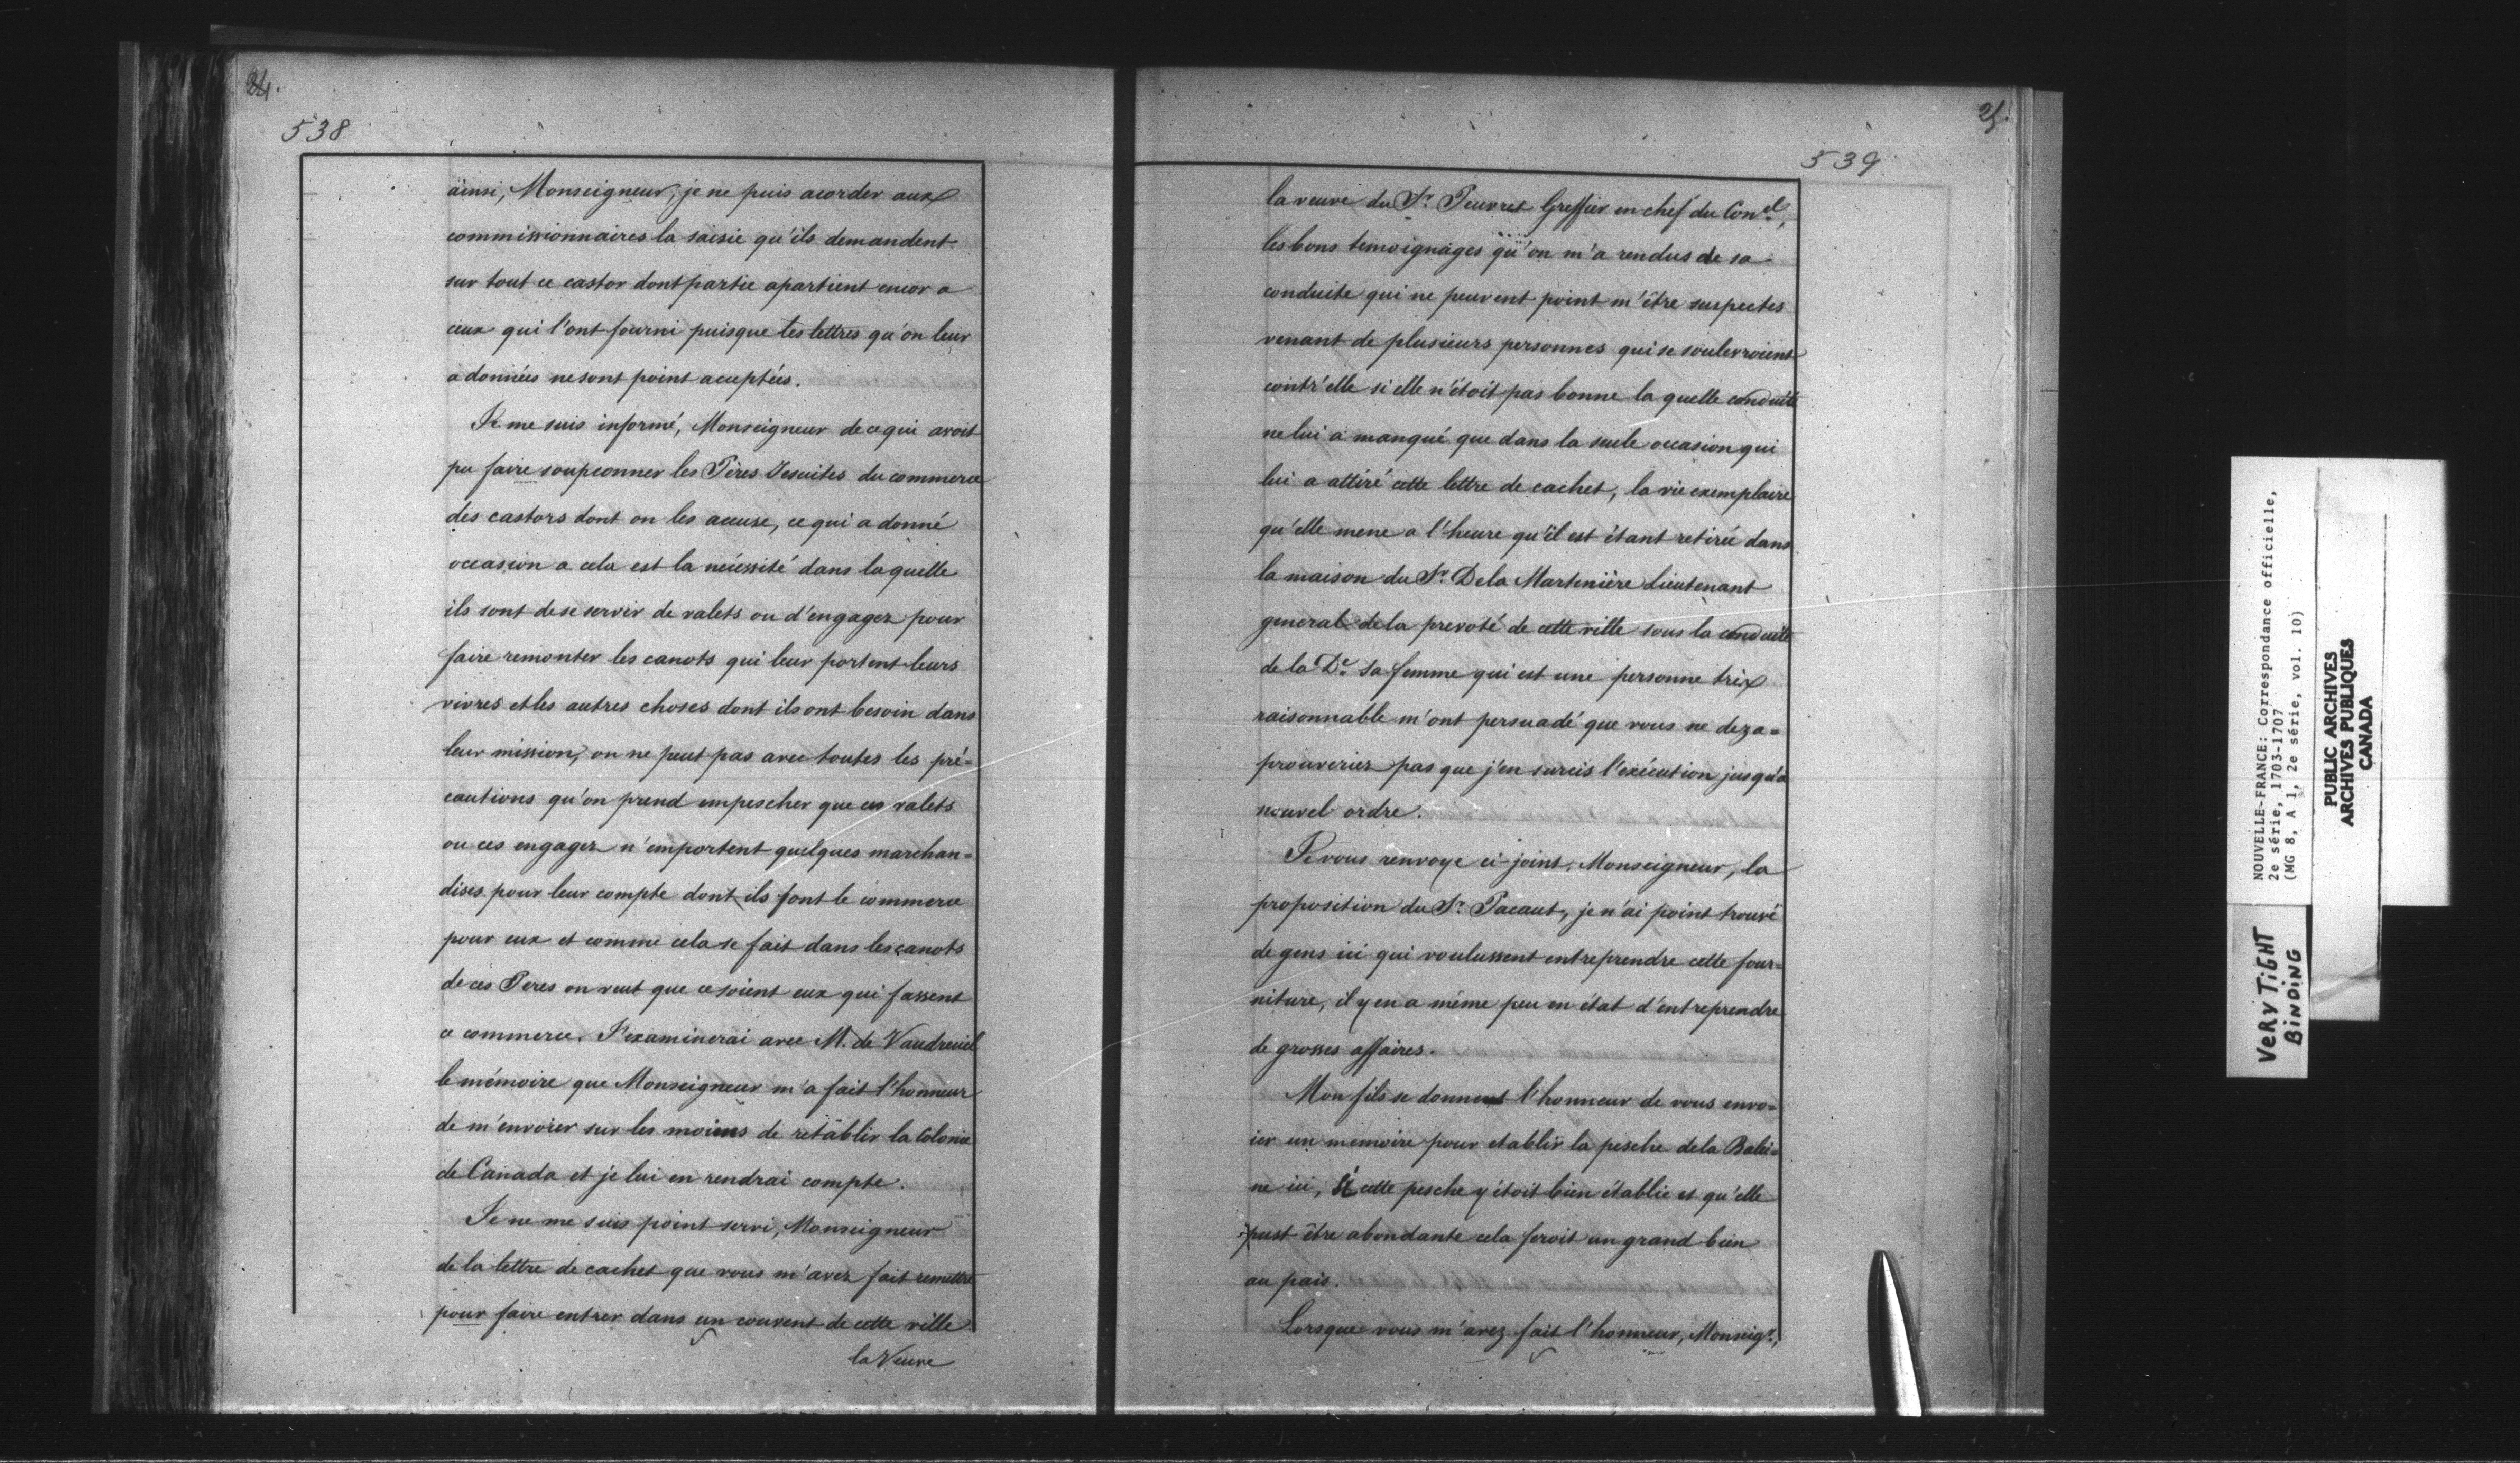 24.
538
ainsi, Monseigneur, je ne puis acorder aux
commissionnaires la saisie qu'ils demandent
sur tout ce castor dont partie apartient encor a
ceux qui l'ont fourni puisque les lettres qu'on leur
a données ne sont point aceptées.
Je me suis informé, Monseigneur de ce qui avoit
pu faire soupconner les Pères Jesuites du commerce
des castors dont on les accuse, ce qui a donné
occasion a cela est la nécessité dans laquelle
ils sont de se servir de valets ou d'engagez pour
faire remonter les canots qui leur portent leurs
vivres et les autres choses dont ils ont besoin dans
leur mission, on ne peut pas avec toutes les pré=
cautions qu'on prend empescher que ces valets
ou ces engagez n'emportent quelques marchan=
dises pour leur compte dont ils font le commerce
pour eux et comme cela se fait dans les canots
de ces Peres on veut que ce soient eux qui fassent
ce commerce. J'examinerai avec M. de Vaudreuil
le mémoire que Monseigneur m'a fait l'honneur
de m'envoier sur les moiens de rétablir la Colonie
de Canada et je lui en rendrai compte.
Je ne me suis point servi, Monseigneur
de la lettre de cachet que vous m'avez fait remettre
pour faire entrer dans un couvent de cette ville
la Veuve
25.
539
la veuve du Sr. Peuvret Greffier en chef du Conel,
les bons temoignages qu'on m'a rendus de sa
conduite qui ne peuvent point m'être suspectes
venant de plusieurs personnes qui se soulevroient
contr'elle si elle n'étoit pas bonne la quelle conduite
ne lui a manqué que dans la seule occasion qui
lui a attiré cette lettre de cachet, la vie exemplaire
qu'elle mene a l'heure qu'il est étant retirée dans
la maison du Sr. De la Martinière Lieutenant
general de la prevoté de cette ville sous la conduite
de la De. sa femme qui est une personne trèx
raisonnable m'ont persuadé que vous ne deza=
prouveriez pas que j'en surcis l'exécution jusqu'a
nouvel ordre.
Je vous renvoye ci-joint, Monseigneur, la
proposition du Sr. Pacaut, je n'ai point trouvé
de gens ici qui voulussent entreprendre cette four=
niture, il y en a même peu en état d'entreprendre
de grosses affaires.
Mon fils se donne l'honneur de vous envo=
ier un memoire pour etablir la pesche de la Balei=
ne ici, Si cette pesche y étoit bien établie et qu'elle
pust être abondante cela feroit un grand bien
au païs.
Lorsque vous m'avez fait l'honneur, Monseigr.,
NOUVELLE-FRANCE: Correspondance officielle,
2e série, 1703-1707
(MG 8, A 1, 2e série, vol. 10)
PUBLIC ARCHIVES
ARCHIVES PUBLIQUES
CANADA
VERY TIGHT
BINDING